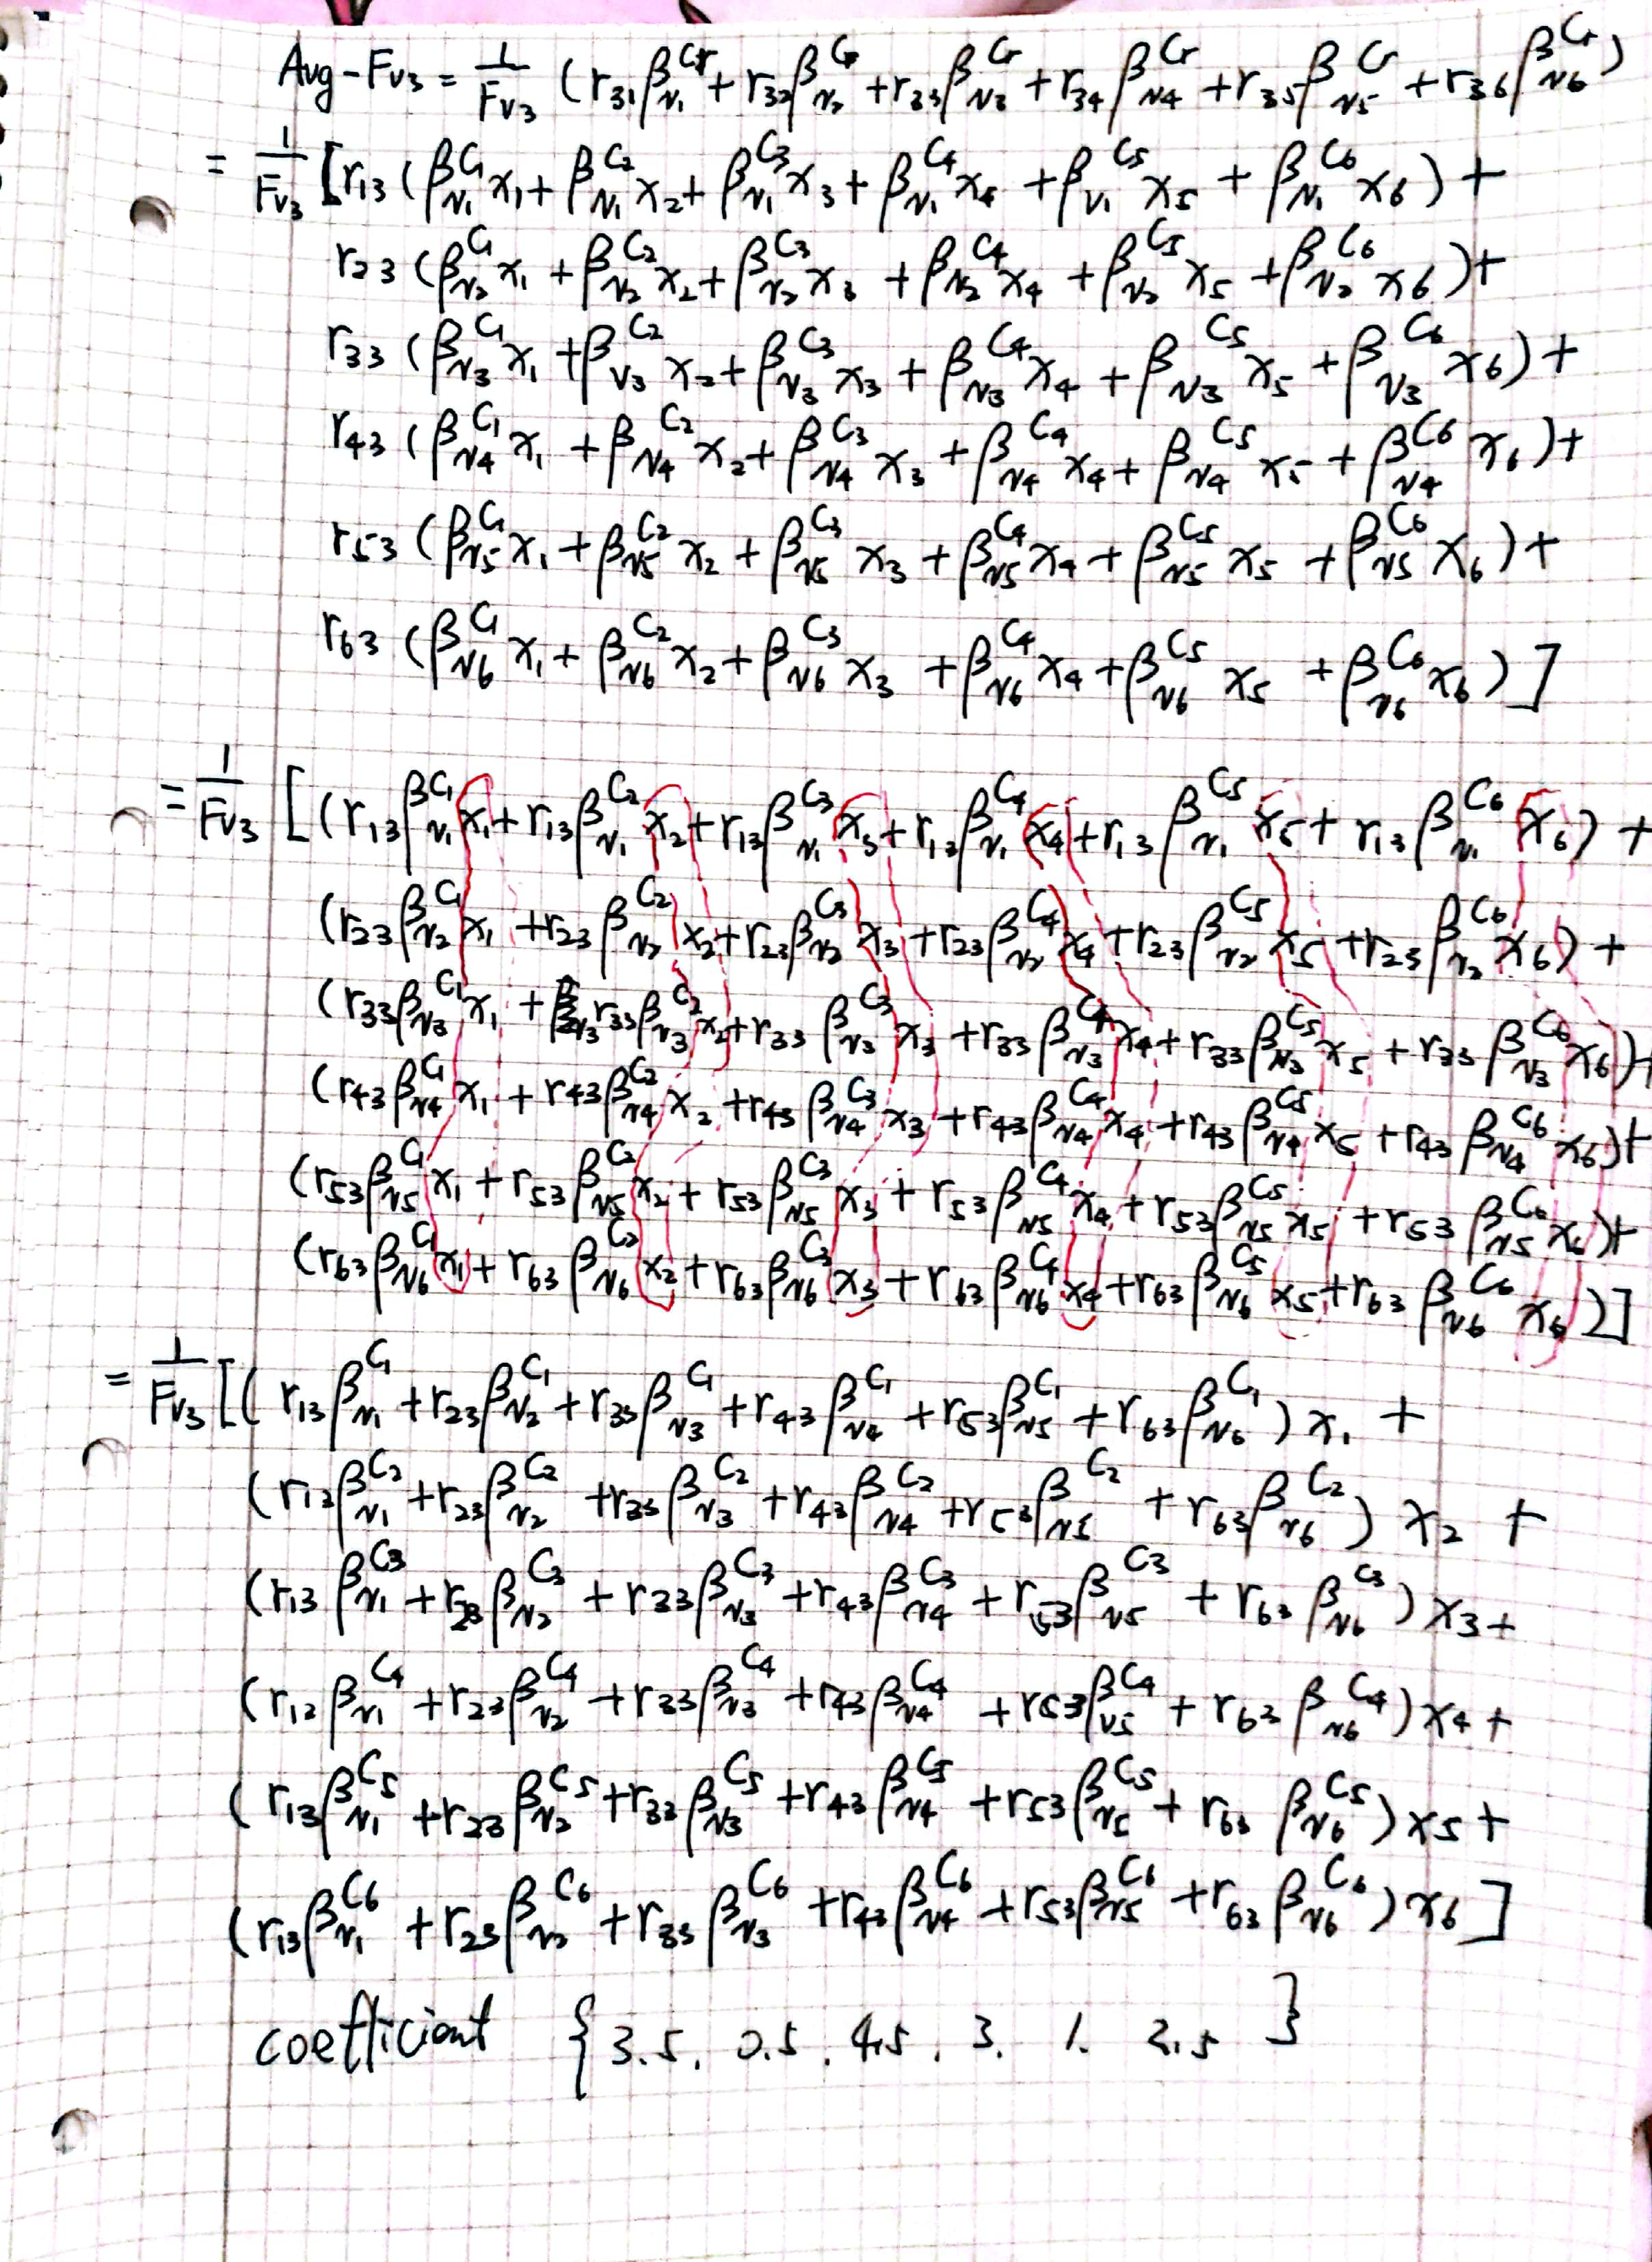 Avg-Fv3 = 1/Fv3 (r31 β_v1^Cr + r32 β_v2^Cr + r33 β_v3^Cr + r34 β_v4^Cr + r35 β_v5^Cr + r36 β_v6^Cr)
= 1/Fv3 [r13 (β_v1^C1 x1 + β_v1^C2 x2 + β_v1^C3 x3 + β_v1^C4 x4 + β_v1^C5 x5 + β_v1^C6 x6) +
r23 (β_v2^C1 x1 + β_v2^C2 x2 + β_v2^C3 x3 + β_v2^C4 x4 + β_v2^C5 x5 + β_v2^C6 x6) +
r33 (β_v3^C1 x1 + β_v3^C2 x2 + β_v3^C3 x3 + β_v3^C4 x4 + β_v3^C5 x5 + β_v3^C6 x6) +
r43 (β_v4^C1 x1 + β_v4^C2 x2 + β_v4^C3 x3 + β_v4^C4 x4 + β_v4^C5 x5 + β_v4^C6 x6) +
r53 (β_v5^C1 x1 + β_v5^C2 x2 + β_v5^C3 x3 + β_v5^C4 x4 + β_v5^C5 x5 + β_v5^C6 x6) +
r63 (β_v6^C1 x1 + β_v6^C2 x2 + β_v6^C3 x3 + β_v6^C4 x4 + β_v6^C5 x5 + β_v6^C6 x6)]
= 1/Fv3 [(r13 β_v1^C1 x1 + r13 β_v1^C2 x2 + r13 β_v1^C3 x3 + r13 β_v1^C4 x4 + r13 β_v1^C5 x5 + r13 β_v1^C6 x6) +
(r23 β_v2^C1 x1 + r23 β_v2^C2 x2 + r23 β_v2^C3 x3 + r23 β_v2^C4 x4 + r23 β_v2^C5 x5 + r23 β_v2^C6 x6) +
(r33 β_v3^C1 x1 + r33 β_v3^C2 x2 + r33 β_v3^C3 x3 + r33 β_v3^C4 x4 + r33 β_v3^C5 x5 + r33 β_v3^C6 x6) +
(r43 β_v4^C1 x1 + r43 β_v4^C2 x2 + r43 β_v4^C3 x3 + r43 β_v4^C4 x4 + r43 β_v4^C5 x5 + r43 β_v4^C6 x6) +
(r53 β_v5^C1 x1 + r53 β_v5^C2 x2 + r53 β_v5^C3 x3 + r53 β_v5^C4 x4 + r53 β_v5^C5 x5 + r53 β_v5^C6 x6) +
(r63 β_v6^C1 x1 + r63 β_v6^C2 x2 + r63 β_v6^C3 x3 + r63 β_v6^C4 x4 + r63 β_v6^C5 x5 + r63 β_v6^C6 x6)]
= 1/Fv3 [(r13 β_v1^C1 + r23 β_v2^C1 + r33 β_v3^C1 + r43 β_v4^C1 + r53 β_v5^C1 + r63 β_v6^C1) x1 +
(r13 β_v1^C2 + r23 β_v2^C2 + r33 β_v3^C2 + r43 β_v4^C2 + r53 β_v5^C2 + r63 β_v6^C2) x2 +
(r13 β_v1^C3 + r23 β_v2^C3 + r33 β_v3^C3 + r43 β_v4^C3 + r53 β_v5^C3 + r63 β_v6^C3) x3 +
(r13 β_v1^C4 + r23 β_v2^C4 + r33 β_v3^C4 + r43 β_v4^C4 + r53 β_v5^C4 + r63 β_v6^C4) x4 +
(r13 β_v1^C5 + r23 β_v2^C5 + r33 β_v3^C5 + r43 β_v4^C5 + r53 β_v5^C5 + r63 β_v6^C5) x5 +
(r13 β_v1^C6 + r23 β_v2^C6 + r33 β_v3^C6 + r43 β_v4^C6 + r53 β_v5^C6 + r63 β_v6^C6) x6]
coefficient {3.5. 0.5. 4.5. 3. 1. 2.5}